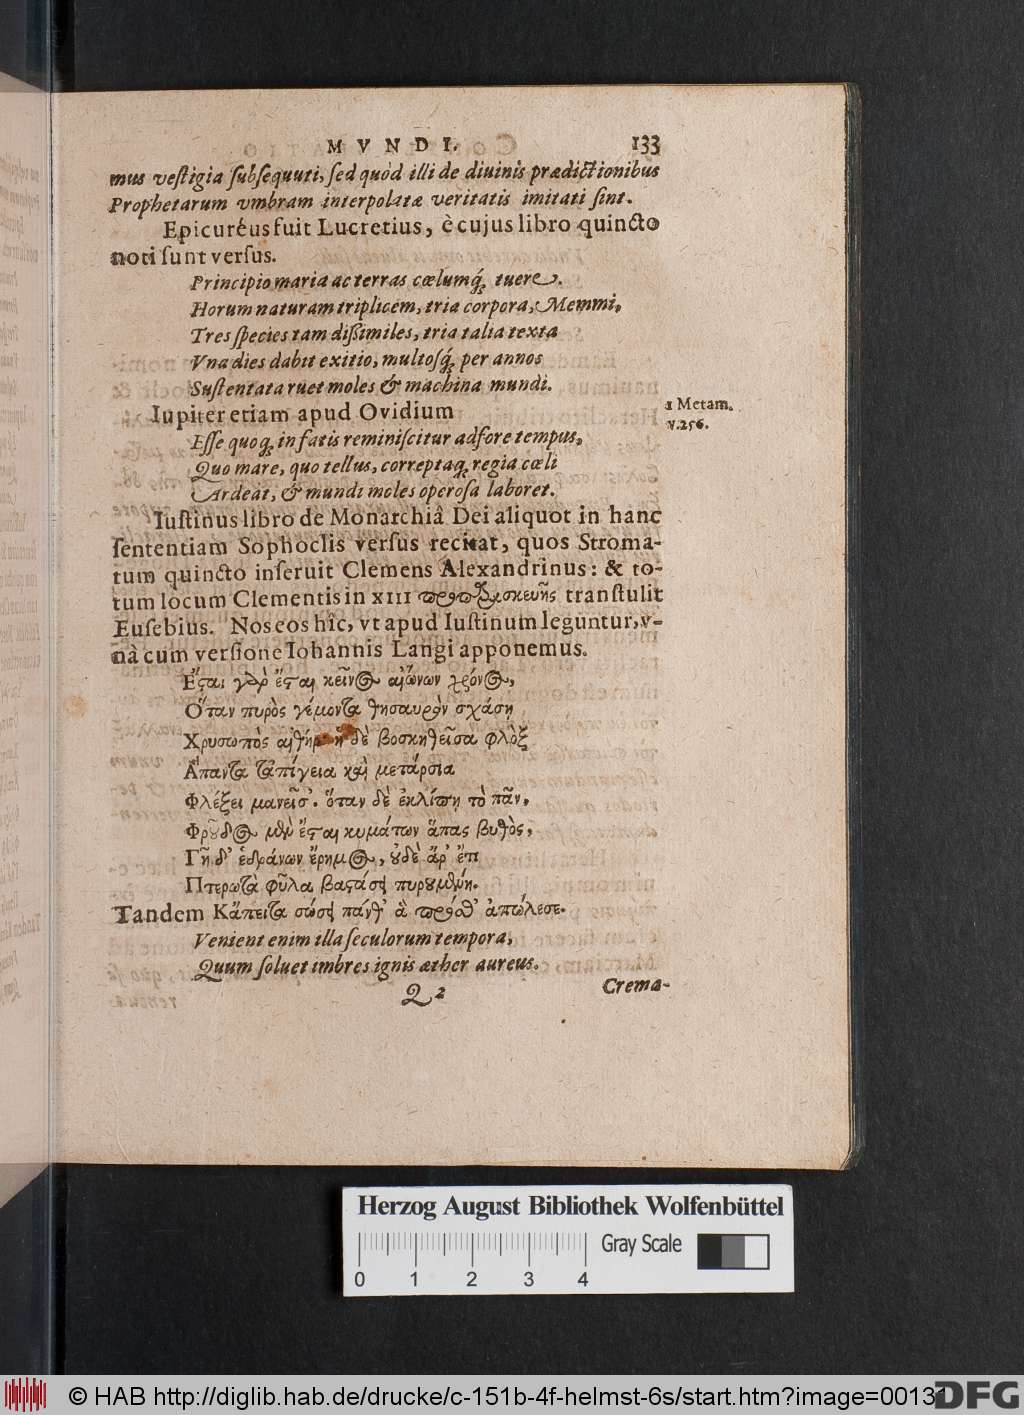 MVNDI. 133
mus veſtigia ſubſequuti, ſed quòd illi de diuinis prædictionibus
Prophetarum vmbram interpolatæ veritatis imitati ſint.
Epicuréus fuit Lucretius, è cujus libro quincto
noti ſunt verſus.
Principio maria ac terras cœlumq́; tuere.
Horum naturam triplicem, tria corpora, Memmi,
Tres ſpecies tam dißimiles, tria talia texta
Vna dies dabit exitio, multoſq́; per annos
Suſtentata ruet moles & machina mundi.
Iupiter etiam apud Ovidium
1 Metam.
v.256.
Eſſe quoq; in fatis reminiſcitur adfore tempus,
Quo mare, quo tellus, correptaq; regia cœli
Ardeat, & mundi moles operoſa laboret.
Iuſtinus libro de Monarchiâ Dei aliquot in hanc
ſententiam Sophoclis verſus recitat, quos Stroma-
tum quincto inſeruit Clemens Alexandrinus: & to-
tum locum Clementis in XIII προπαρασκευῆς tranſtulit
Euſebius. Nos eos hîc, vt apud Iuſtinum leguntur, v-
nà cum verſione Iohannis Langi apponemus.
Ἔσται γὰρ ἔσται κεῖνος αἰώνων χρόνος,
Ὅταν πυρὸς γέμοντα θησαυρὸν σχάση
Χρυσωπὸς αἰθήρ· ἡ δὲ βοσκηθεῖσα φλὸξ
Ἅπαντα τἀπίγεια καὶ μετάρσια
Φλέξει μανεῖσ'. ὅταν δὲ ἐκλίπη τὸ πᾶν,
Φροῦδος μὲν ἔσται κυμάτων ἅπας βυθὸς,
Γῆ δ' ἑδράνων ἔρημος, οὐδὲ ἄρ' ἔπ
Πτερωτὰ φῦλα βαστάσει πυρουμένη.
Tandem Κἄπειτα σώσει πάνθ' ἃ πρόσθ' ἀπώλεσε.
Venient enim illa ſeculorum tempora,
Quum ſoluet imbres ignis æther aureus.
Q 2 Crema-
Herzog August Bibliothek Wolfenbüttel
Gray Scale
0 1 2 3 4
© HAB http://diglib.hab.de/drucke/c-151b-4f-helmst-6s/start.htm?image=00131
DFG